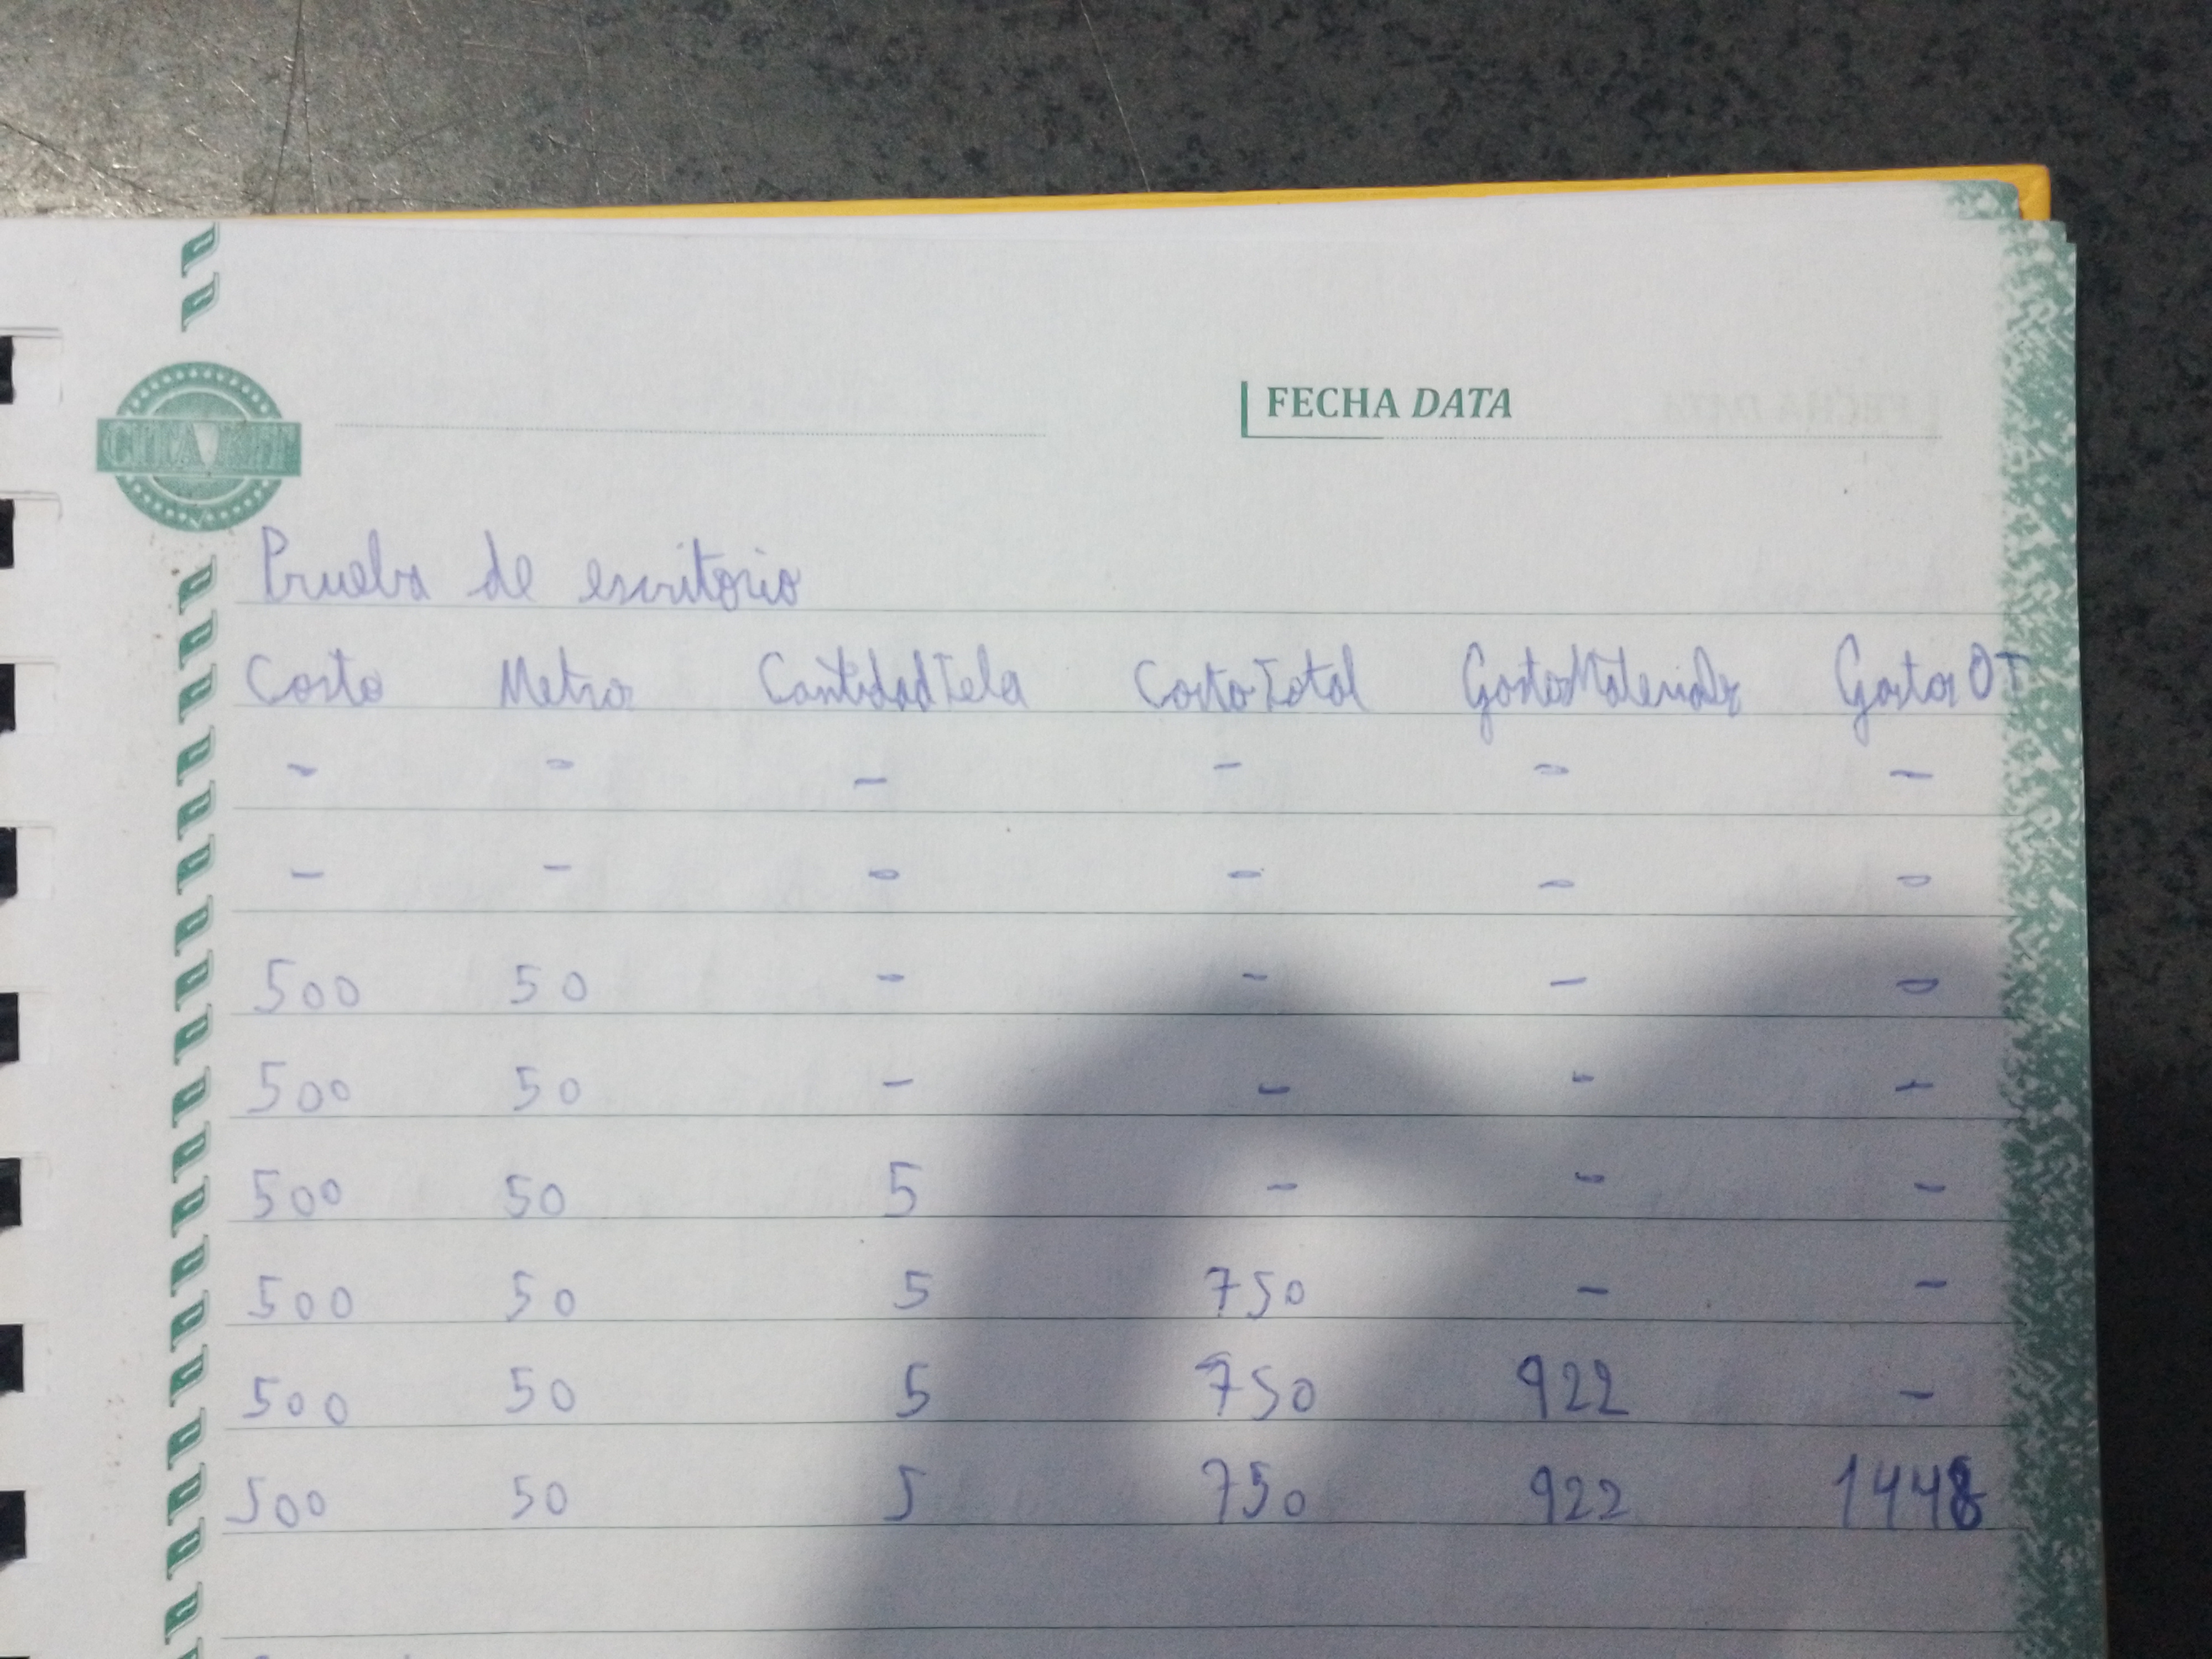 CITAVENT
FECHA DATA
Prueba de escritorio
Costo Metro CantidadTela CostoTotal GastosMateriales Gastos OT
- - - - - -
- - - - - -
500 50 - - - -
500 50 - - - -
500 50 5 - - -
500 50 5 750 - -
500 50 5 750 922 -
500 50 5 750 922 1448